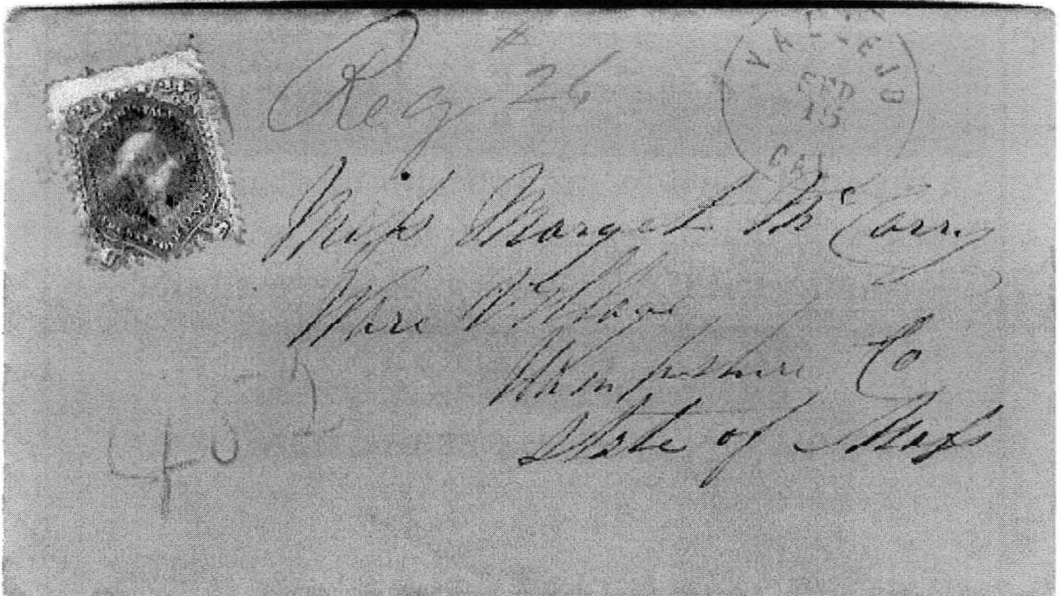 Reg # 26
VALLEJO
FEB
15
CAL
Miss Marget McCarry
Ware Village
Hampshire Co
State of Mass